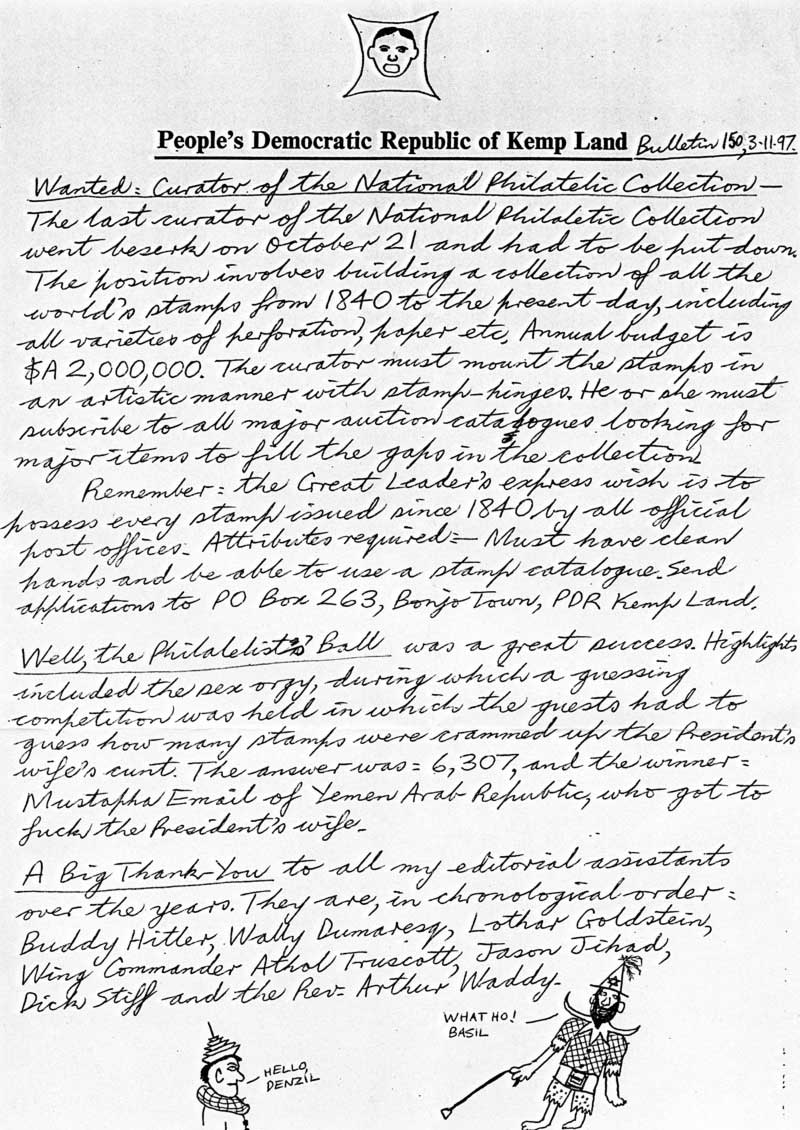 People's Democratic Republic of Kemp Land Bulletin 150, 3-11-97.
Wanted: Curator of the National Philatelic Collection —
The last curator of the National Philaletic Collection
went beserk on October 21 and had to be put down.
The position involves building a collection of all the
world's stamps from 1840 to the present day, including
all varieties of perforation, paper etc. Annual budget is
$A 2,000,000. The curator must mount the stamps in
an artistic manner with stamp-hinges. He or she must
subscribe to all major auction catalogues looking for
major items to fill the gaps in the collection.
Remember: the Great Leader's express wish is to
possess every stamp issued since 1840 by all official
post offices. Attributes required:— Must have clean
hands and be able to use a stamp catalogue. Send
applications to PO Box 263, Bonjo Town, PDR Kemp Land.
Well, the Philatelists' Ball was a great success. Highlights
included the sex orgy, during which a guessing
competition was held in which the guests had to
guess how many stamps were crammed up the President's
wife's cunt. The answer was: 6,307, and the winner:
Mustapha Email of Yemen Arab Republic, who got to
fuck the President's wife.
A Big Thank-You to all my editorial assistants
over the years. They are, in chronological order:
Buddy Hitler, Wally Dumaresq, Lothar Goldstein,
Wing Commander Athol Truscott, Jason Jihad,
Dick Stiff and the Rev. Arthur Waddy.
WHAT HO!
BASIL
HELLO,
DENZIL